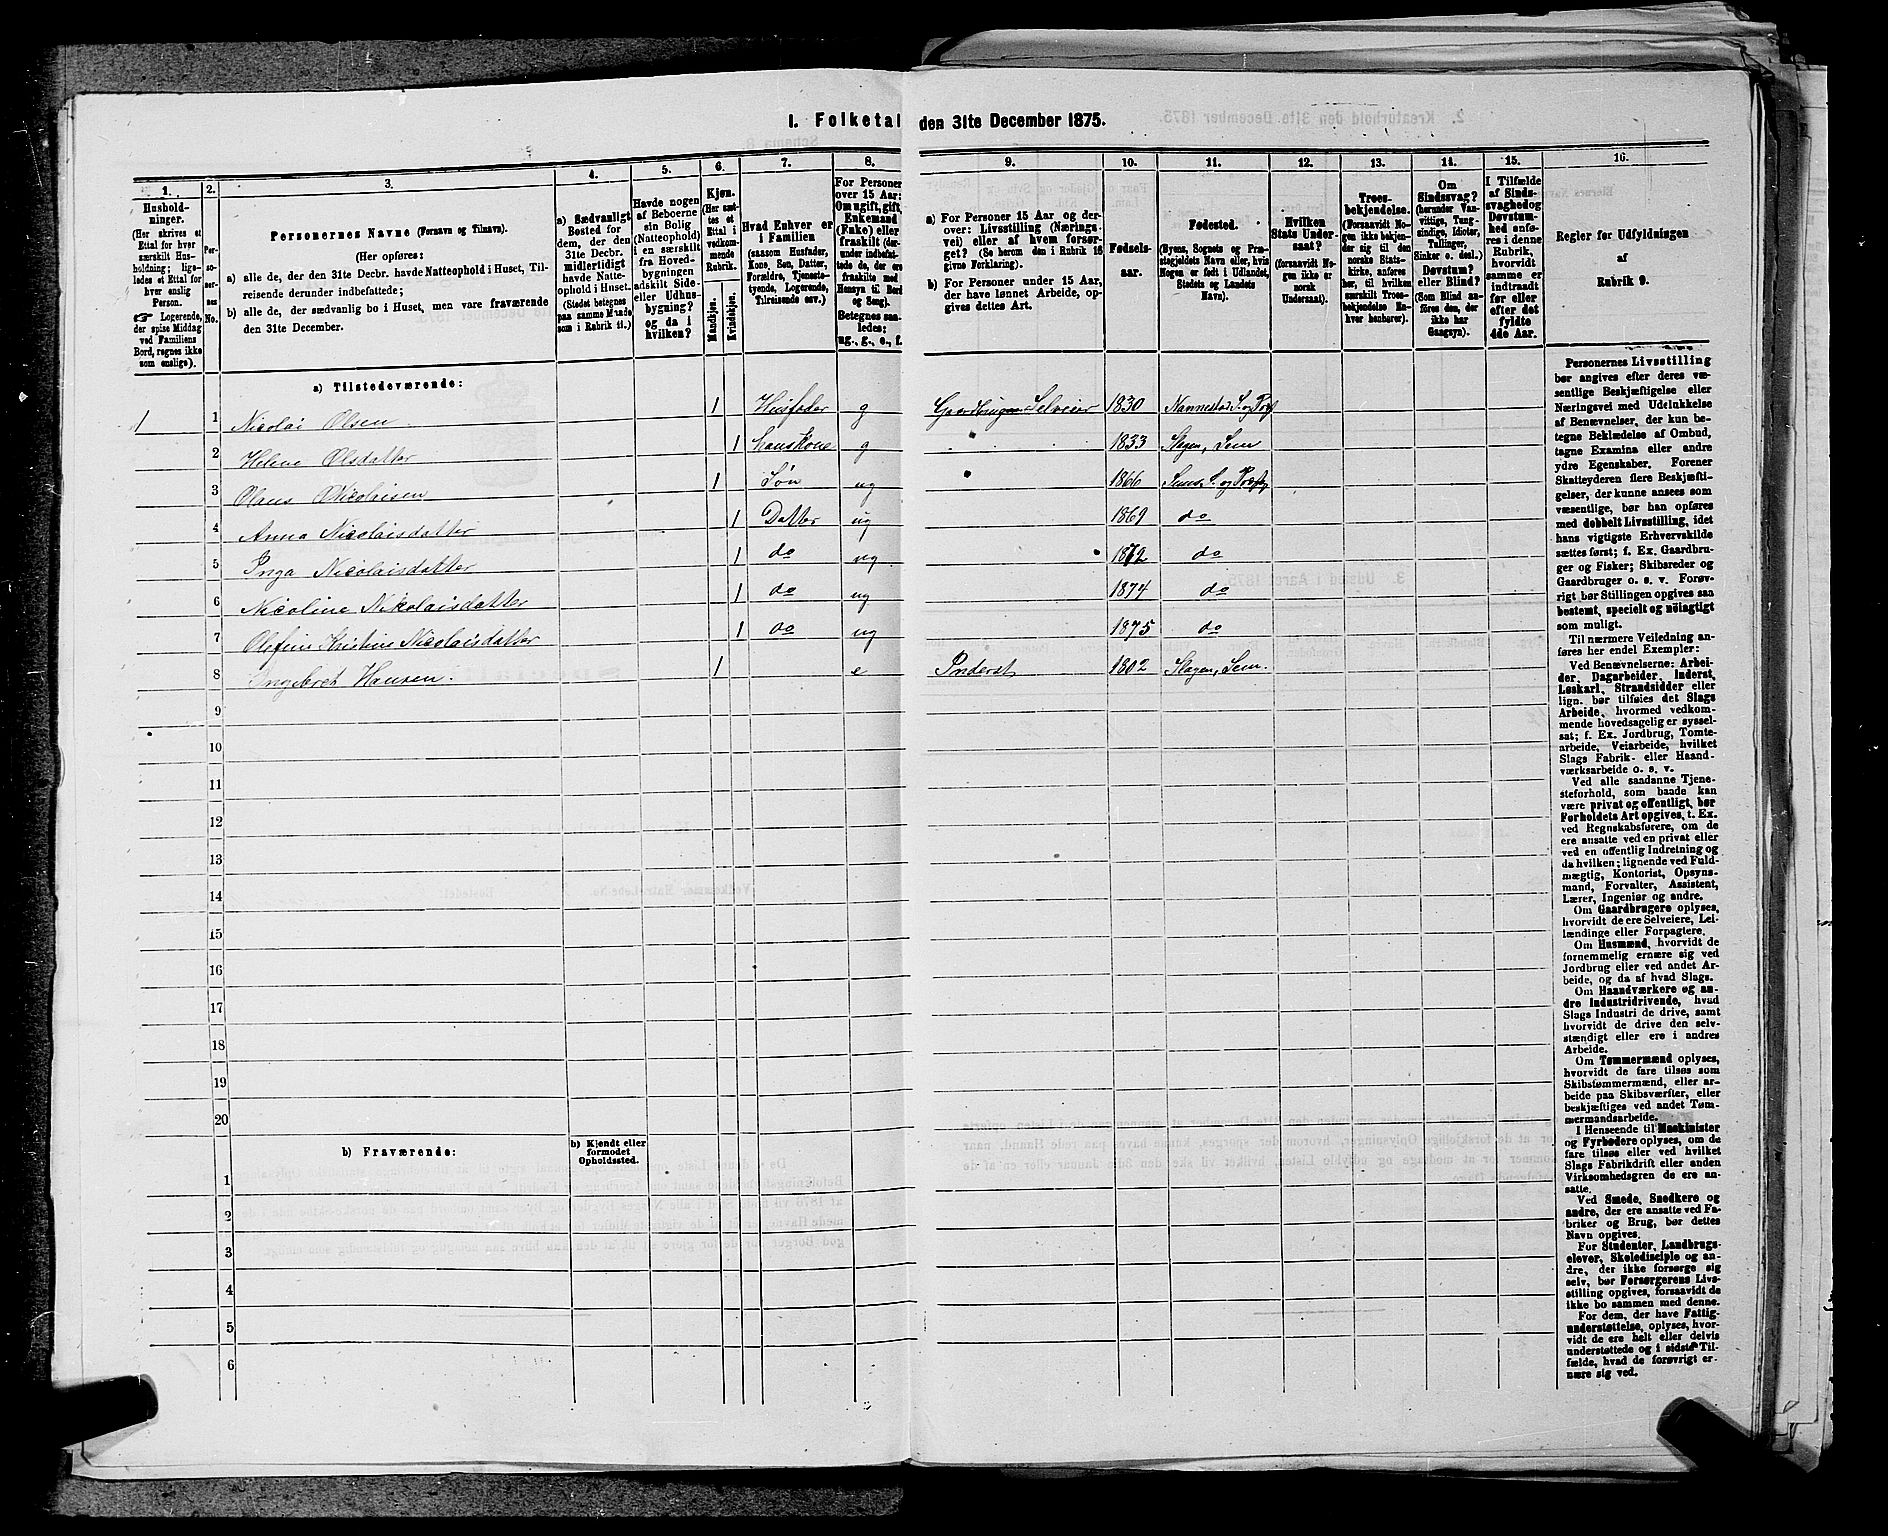 1. Folketal den 31te December 1875.
1.
Hushold-
ninger.
(Her skrives et
Ettal for hver
særskilt Hus-
holdning; lige-
ledes et Ettal for
hver enslig
Person.
☞ Logerende,
der spise Middag
ved Familiens
Bord, regnes ikke
som enslige).
2.
Per-
so-
ner-
nes
No.
3.
Personernes Navne (Fornavn og Tilnavn).
(Her opføres:
a) alle de, der den 31te Decbr. havde Natteophold i Huset, Til-
reisende derunder indbefattede;
b) alle de, der sædvanlig bo i Huset, men vare fraværende
den 31te December.
4.
a) Sædvanligt
Bosted for
dem, der den
31te Decbr.
midlertidigt
havde Natte-
ophold i Huset.
(Stedet betegnes
paa samme Maade
som i Rubrik 11.)
5.
Havde nogen
af Beboerne
sin Bolig
(Natteophold)
i en særskilt
fra Hoved-
bygningen
adskilt Side-
eller Udhus-
bygning?
og da i
hvilken?
6.
Kjøn.
(Her sæt-
tes et
Ettal i
vedkom-
mende
Rubrik.
Mandkjøn.
Kvindekjøn.
7.
Hvad Enhver er
i Familien
(saasom Husfader,
Kone, Søn, Datter,
Forældre, Tjeneste-
tyende, Logerende,
Tilreisende osv.)
8.
For Personer
over 15 Aar:
Om ugift, gift,
Enkemand
(Enke) eller
fraskilt (der-
under indbefat-
tede de, der ere
fraskilte med
Hensyn til Bord
og Seng).
Betegnes saa-
ledes:
ug., g., e., f.
9.
a) For Personer 15 Aar og der-
over: Livsstilling (Nærings-
vei) eller af hvem forsør-
get? (Se herom den i Rubrik 16
givne Forklaring).
b) For Personer under 15 Aar,
der have lønnet Arbeide, op-
gives dettes Art.
10.
Fødsels-
aar.
11.
Fødested.
(Byens, Sognets og Præ-
stegjeldets Navn eller, hvis
Nogen er født i Udlandet,
Stedets og Landets
Navn).
12.
Hvilken
Stats Under-
saat?
(forsaavidt No-
gen ikke er
norsk
Undersaat).
13.
Troes-
bekjendelse.
(Forsaavidt No-
gen ikke bekjen-
der sig til den
norske Stats-
kirke, anføres
her, til hvilken
særskilt Troes-
bekjendelse En-
hver henhører).
14.
Om
Sindssvag?
(herunder Van-
vittige, Tung-
sindige, Idioter,
Tullinger,
Sinker o. desl.)
Døvstum?
eller Blind?
(Som Blind an-
føres den, der
ikke har
Gangsyn).
15.
I Tilfælde
af Sinds-
svaghed og
Døvstum-
hed anfø-
res i denne
Rubrik,
hvorvidt
samme er
indtraadt
før eller
efter det
fyldte
4de Aar.
16.
Regler for Udfyldningen
af
Rubrik 9.
a) Tilstedeværende:
1 1 Nicolai Olsen 1 Husfader g Gaardbruger Selveier 1830 Nannestad S. og Præst
2 Helene Olsdatter 1 hans Kone g 1833 Slagen, Sem
3 Olaus Nicolaisen 1 Søn ug 1866 Sems S. og Præstg
4 Anna Nicolaisdatter 1 Datter ug 1869 do
5 Inga Nicolaisdatter 1 do ug 1872 do
6 Nicoline Nikolaisdatter 1 do ug 1874 do
7 Olefine Kristine Nicolaisdatter 1 do ug 1875 do
8 Ingebret Hansen. 1 e Inderst 1802 Slagen, Sem.
9
10
11
12
13
14
15
16
17
18
19
20
b) Fraværende:
b) Kjendt eller
formodet
Opholdssted.
1
2
3
4
5
6
Personernes Livsstilling
bør angives efter deres væ-
sentlige Beskjæftigelse eller
Næringsvei med Udelukkelse
af Benævnelser, der kun be-
tegne Beklædelse af Ombud,
tagne Examina eller andre
ydre Egenskaber. Forener
Skatteyderen flere Beskjæfti-
gelser, der kunne ansees som
væsentlige, bør han opføres
med dobbelt Livsstilling, idet
hans vigtigste Erhvervskilde
sættes først; f. Ex. Gaardbru-
ger og Fisker; Skibsreder og
Gaardbruger o. s. v. Forøv-
rigt bør Stillingen opgives saa
bestemt, specielt og nøiagtigt
som muligt.
Til nærmere Veiledning an-
føres her endel Exempler:
Ved Benævnelserne: Arbei-
der, Dagarbeider, Inderst,
Løskarl, Strandsidder eller
lign. bør tilføies det Slags
Arbeide, hvormed vedkom-
mende hovedsagelig er syssel-
sat; f. Ex. Jordbrug, Tomte-
arbeide, Veiarbeide, hvilket
Slags Fabrik- eller Haand-
værksarbeide o. s. v.
Ved alle saadanne Tjene-
steforhold, som baade kan
være privat og offentligt, bør
Forholdets Art opgives, t. Ex.
ved Regnskabsførere, om de
ere ansatte ved en privat eller
ved en offentlig Indretning og
da hvilken; lignende ved Fuld-
mægtig, Kontorist, Opsyns-
mand, Forvalter, Assistent,
Lærer, Ingeniør og andre.
Om Gaardbrugere oplyses,
hvorvidt de ere Selveiere, Lei-
lændinge eller Forpagtere.
Om Husmænd, hvorvidt de
fornemmelig ernære sig ved
Jordbrug eller ved andet Ar-
beide, og da af hvad Slags.
Om Haandværkere og an-
dre Industridrivende, hvad
Slags Industri de drive, samt
hvorvidt de drive den selv-
stændigt eller ere i andres
Arbeide.
Om Tømmermænd oplyses,
hvorvidt de fare tilsøs som
Skibstømmermænd, eller ar-
beide paa Skibsværfter, eller
beskjæftiges ved andet Tøm-
mermandsarbeide.
I Henseende til Maskinister
og Fyrbødere oplyses, om de
fare tilsøs eller ved hvilket
Slags Fabrikdrift eller anden
Virksomhedsgren de ere an-
satte.
Ved Smede, Snedkere og
andre, der ere ansatte ved Fa-
briker og Brug, bør dettes
Navn opgives.
For Studenter, Landbrugs-
elever, Skoledisciple og an-
dre, der ikke forsørge sig
selv, bør Forsørgerens Livs-
stilling opgives, forsaavidt de
ikke bo sammen med denne.
For dem, der have Fattig-
understøttelse, oplyses, hvor-
vidt de ere helt eller delvis
understøttede og i sidste Til-
fælde, hvad de forøvrigt er-
nære sig ved.